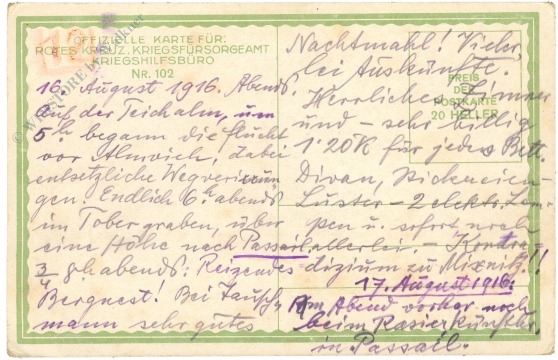 OFFIZIELLE KARTE FÜR:
ROTES KREUZ, KRIEGSFÜRSORGEAMT
KRIEGSHILFSBÜRO
NR. 102
16. August 1916. Abends
auf der Teichalm, um
5h begann die Flucht
vor Almvieh, dabei
entsetzliche Wegverirrun
gen. Endlich 6h abends
im Tobergraben, über
eine Höhe nach Passail.
3/4 9h abends: Reizendes
Bergnest! Bei Tausch-
mann sehr gutes
Nachtmahl! Vieler
lei Auskünfte.
Herrliches Zimmer
und - sehr billig
1·20K für jedes Bett.
Divan,
Luster - 2 elektr. Lam-
pen u. sofort noch
allerlei. - Kontra-
dizium zu Mixnitz!!
17. August 1916:
Am Abend vorher noch
beim Rasierkünstler
in Passail.
PREIS
DER
POSTKARTE
20 HELLER